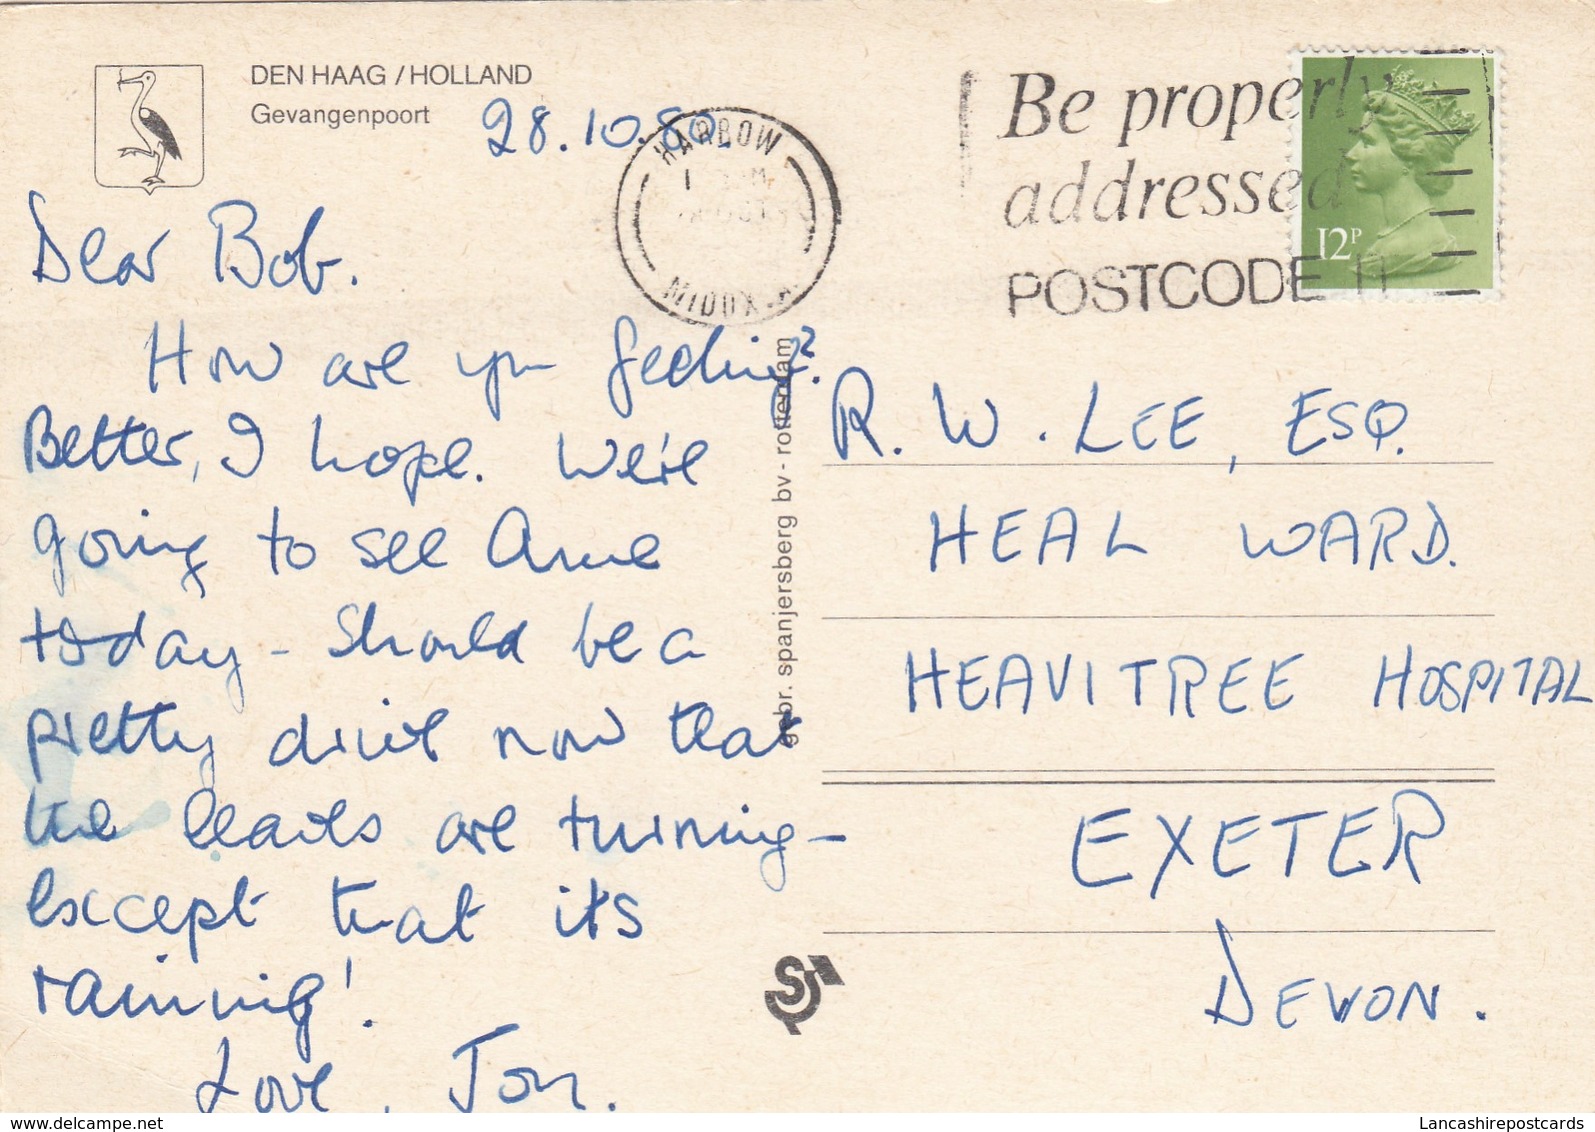 DEN HAAG / HOLLAND
Gevangenpoort
28.10.80.
HARROW
MIDDX
Be properly
addressed
POSTCODE IT
12P
Dear Bob.
How are you feeling?
Better, I hope. We're
going to see Anne
today - should be a
pretty drive now that
the leaves are turning -
except that its
raining!
Love, Jon.
gebr. spanjersberg bv - rotterdam
R. W. LEE, ESQ.
HEAL WARD.
HEAVITREE HOSPITAL
EXETER
DEVON.
www.delcampe.net
Lancashirepostcards